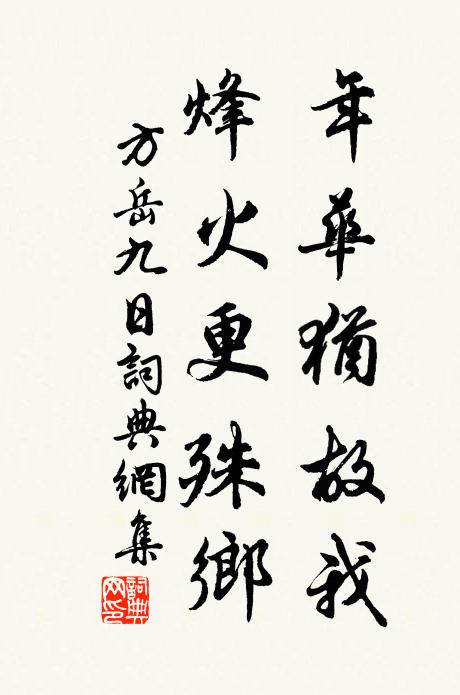 年華猶故我
烽火更殊鄉
方岳九日詞典網集
詞典网印